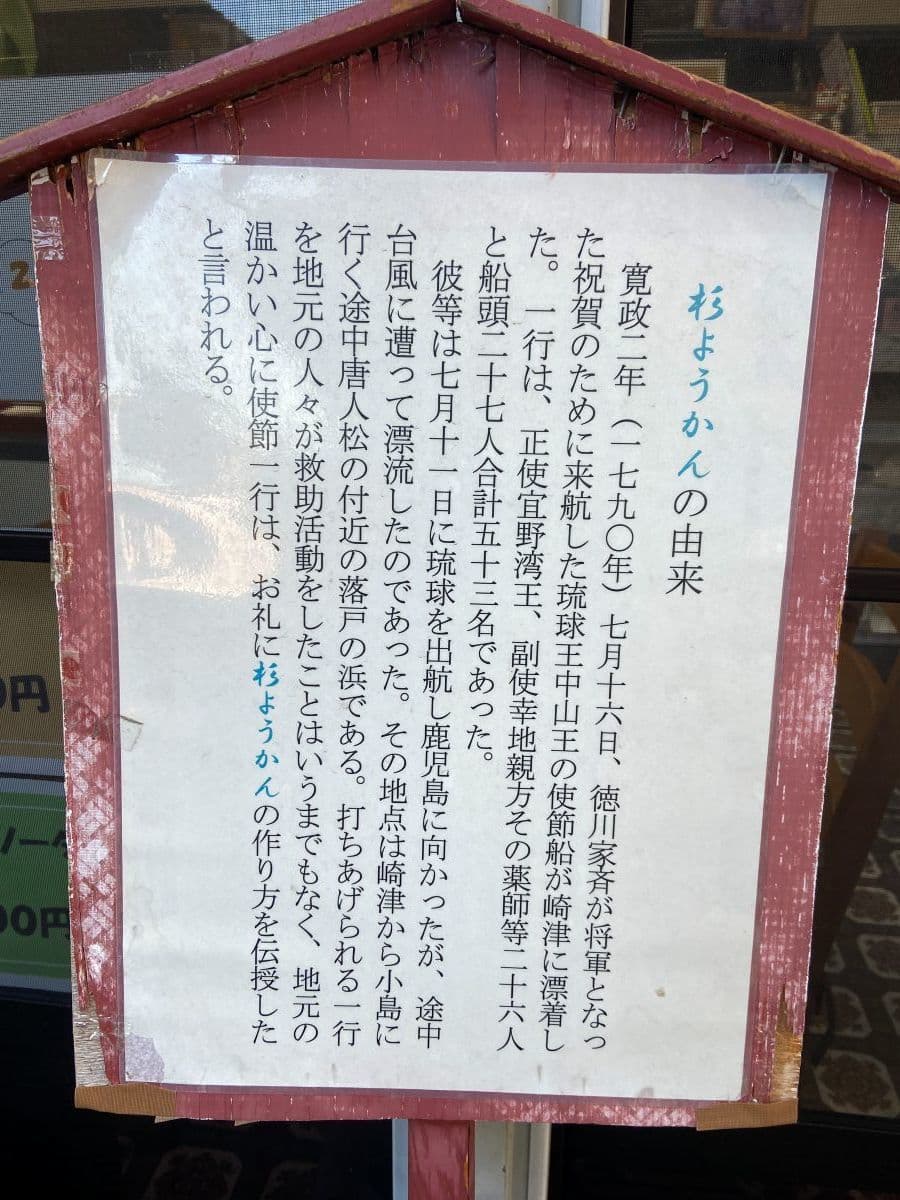 杉ようかんの由来
寛政二年（一七九〇年）七月十六日、徳川家斉が将軍となっ
た祝賀のために来航した琉球王中山王の使節船が崎津に漂着し
た。一行は、正使宜野湾王、副使幸地親方その薬師等二十六人
と船頭二十七人合計五十三名であった。
彼等は七月十一日に琉球を出航し鹿児島に向かったが、途中
台風に遭って漂流したのであった。その地点は崎津から小島に
行く途中唐人松の付近の落戸の浜である。打ちあげられる一行
を地元の人々が救助活動をしたことはいうまでもなく、地元の
温かい心に使節一行は、お礼に杉ようかんの作り方を伝授した
と言われる。
2
0円
00円